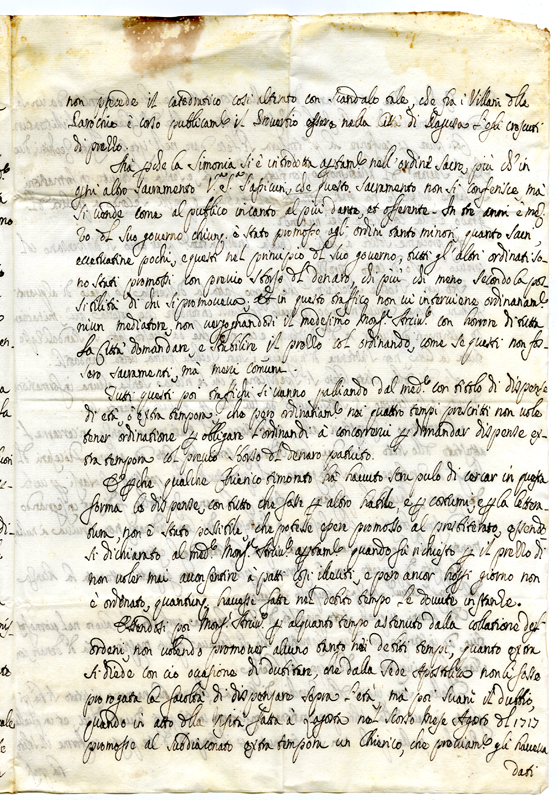 non precede il catedratico così alterato con scandalo tale, che fra i Villani della
Parochie è corso publicam.te il Proverbio essere nella Città di Ragusa i Vesi cresciuti
di prezzo.
piede la Simonia si è introdotta nell'ordine Sacro, più ch'in
ogni altro Sacramento che questo Sacramento non si conferisce, ma
si vende come al publico incanto al più dante, et offerente. In tre anni e mez
zo del suo governo chiunq. è stato promosso agl'ordini tanto minori, quanto Sacri,
eccettuatine pochi, e questi nel principio del suo governo, tutti gl'altri ordinati so
no stati promossi con previo sborso del denaro, chi più, chi meno secondo la pos
sibilità di chi si promoveva. Et in questo traffico non vi interviene ordinariam.te
niun mediatore, non vergognandosi il medesimo Mons.r Arciv.o con horrore di tutta
la Città domandare, e stabilire il prezzo col ordinando, come se questi non fos
sero Sacramenti, mà merci comuni.
Tutti questi poi traffichi si vanno palliando dal med.o con titolo di dispense
di età, ò extra tempora che però ordinariam.te nei quattro tempi prescritti non vole
tener ordinatione p obligare l'ordinandi à concorrervi p dimandar dispense ex
tra tempora col previo sborso del denaro pattuito.
che qualche Chierico timorato hà havuto scrupulo di cercar in questa
forma la dispense, con tutto che fosse p altro habile e p costumi, e p la lettera
tura, non è stato possibile che potesse essere promosso al presbiterato, essendo
si dichiarato al med.o Mons.r Arciv.o quando fù richiesto p il prezzo di
non voler mai acconsentire à patti così illeciti, e però ancor hoggi giorno non
è ordinato, quantunq. havesse fatte nel debito tempo le dovute instanze.
Essendosi poi Mons.r Arciv.o p alquanto tempo astenuto dalla collatione del
ordeni non volendo promover alcuno tanto nei debiti tempi, quanto extra
si diede con ciò occasione di dubitare, che dalla Sede Apostolica non li fosse
prorogata la facoltà di dispensare sopra l'età, mà poi svanì il dubbio,
quando in atto della visita fatta à Lagosta nel scorso Mese Agosto del 1717
promosse al Suddiaconato extra tempora un Chierico, che previam.te gli haveva
dati